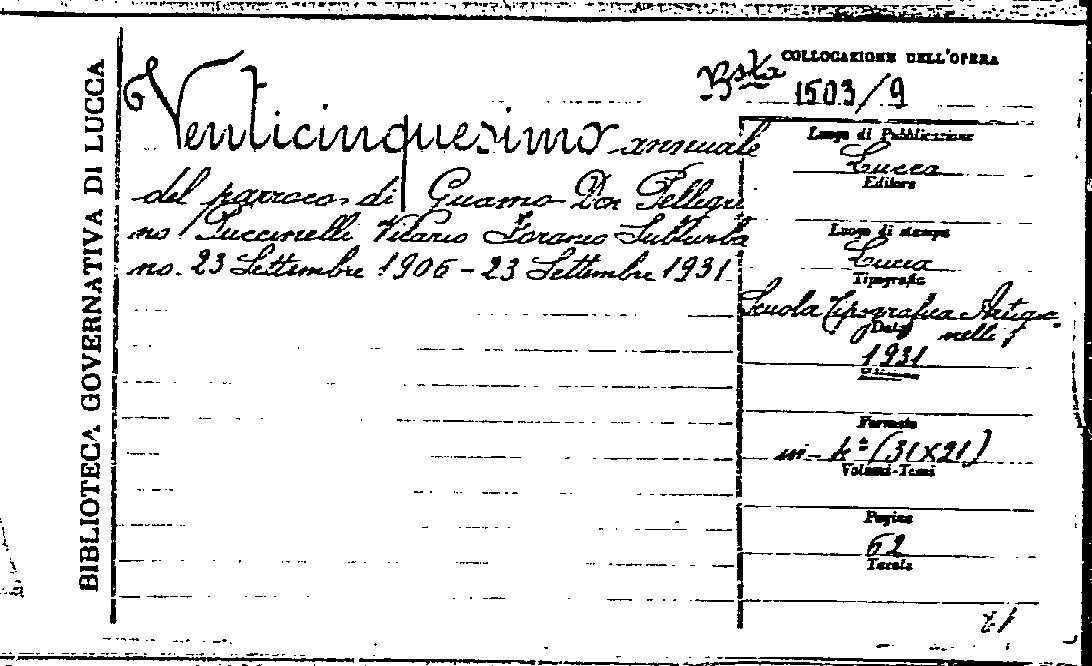 BIBLIOTECA GOVERNATIVA DI LUCCA
Venticinquesimo annuale
del parroco di Guamo Don Pellegri
no Puccinelli Vicario Foraneo Suburba
no. 23 Settembre 1906 - 23 Settembre 1931
Bsta
COLLOCAZIONE DELL'OPERA
1503/9
Luogo di Pubblicazione
Lucca
Editore
Luogo di stampa
Lucca
Tipografia
Scuola Tipografica Artigia
nelli
Data
1931
Formato
in-4° (31x21)
Volumi-Tomi
Pagine
62
Tavole